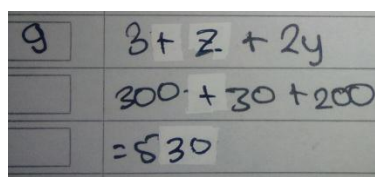 9 3 + z + 2y
300 + 30 + 200
= 530